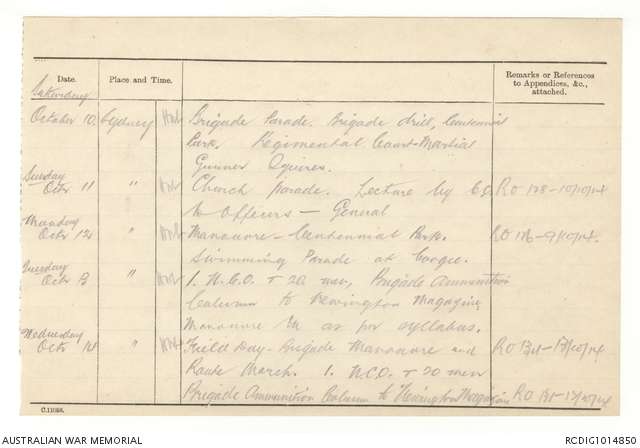 Date. Place and Time. Remarks or References to Appendices, &c., attached.
Saturday
October 10. Sydney Brigade Parade. Brigade drill, Centennial
Park, Regimental Court-Martial
Gunner Squires.
Sunday
Octr 11 " Church Parade. Lecture by C.O. RO 128-10/10/14
to Officers — General
Monday
Octr 12 " Manouvre - Centennial Park. RO 126-9/10/14.
Swimming Parade at Coogee.
Tuesday
Octr 13 " 1. N.C.O. & 20 men, Brigade Ammunition
Column to Newington Magazine,
Manouvre as per syllabus.
Wednesday
Octr 14 " Field Day - Brigade Manouvre and RO 131-13/10/14
Route March. 1. N.C.O. & 20 men
Brigade Ammunition Column to Newington Magazine RO 131-13/10/14
C.11088.
AUSTRALIAN WAR MEMORIAL
RCDIG1014850